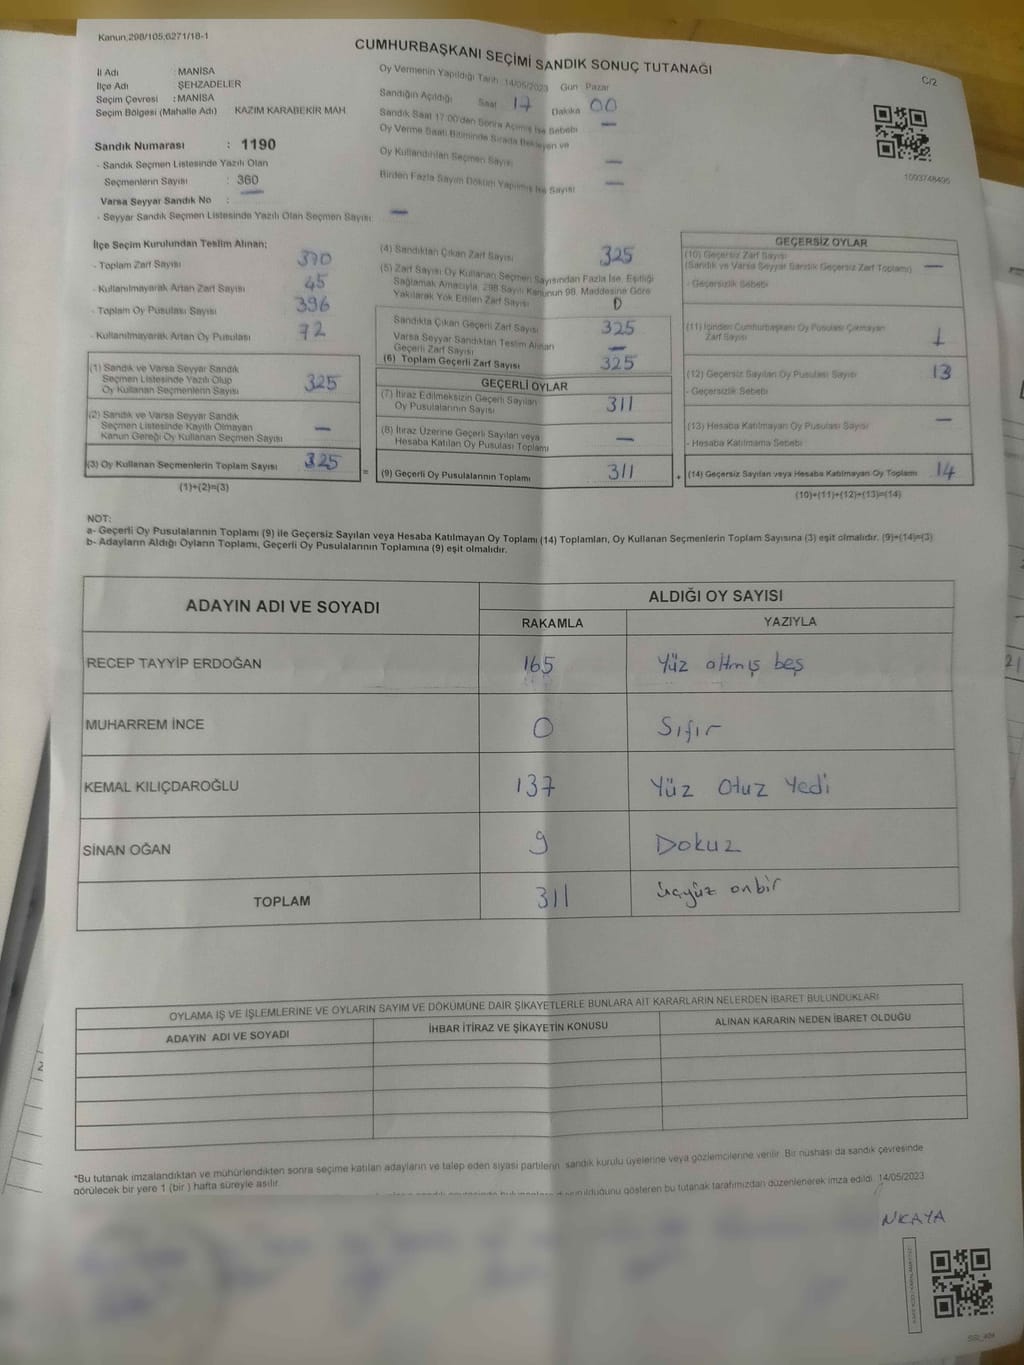 Kanun:298/105;6271/18-1
CUMHURBAŞKANI SEÇİMİ SANDIK SONUÇ TUTANAĞI
C/2
İl Adı : MANİSA
İlçe Adı : ŞEHZADELER
Seçim Çevresi : MANİSA
Seçim Bölgesi (Mahalle Adı) KAZIM KARABEKİR MAH.
Sandık Numarası : 1190
- Sandık Seçmen Listesinde Yazılı Olan
Seçmenlerin Sayısı : 360
Varsa Seyyar Sandık No :
- Seyyar Sandık Seçmen Listesinde Yazılı Olan Seçmen Sayısı: —
Oy Vermenin Yapıldığı Tarih: 14/05/2023 Gün: Pazar
Sandığın Açıldığı Saat 17 Dakika 00
Sandık Saat 17:00'den Sonra Açılmış İse Sebebi —
Oy Verme Saati Bitiminde Sırada Bekleyen ve
Oy Kullandırılan Seçmen Sayısı —
Birden Fazla Sayım Döküm Yapılmış İse Sayısı —
1093748495
İlçe Seçim Kurulundan Teslim Alınan;
- Toplam Zarf Sayısı 370
- Kullanılmayarak Artan Zarf Sayısı 45
- Toplam Oy Pusulası Sayısı 396
- Kullanılmayarak Artan Oy Pusulası 72
(1) Sandık ve Varsa Seyyar Sandık
Seçmen Listesinde Yazılı Olup
Oy Kullanan Seçmenlerin Sayısı 325
(2) Sandık ve Varsa Seyyar Sandık
Seçmen Listesinde Kayıtlı Olmayan
Kanun Gereği Oy Kullanan Seçmen Sayısı —
(3) Oy Kullanan Seçmenlerin Toplam Sayısı 325
(1)+(2)=(3)
(4) Sandıktan Çıkan Zarf Sayısı 325
(5) Zarf Sayısı Oy Kullanan Seçmen Sayısından Fazla İse, Eşitliği
Sağlamak Amacıyla, 298 Sayılı Kanunun 98. Maddesine Göre
Yakılarak Yok Edilen Zarf Sayısı 0
Sandıkta Çıkan Geçerli Zarf Sayısı 325
Varsa Seyyar Sandıktan Teslim Alınan
Geçerli Zarf Sayısı —
(6) Toplam Geçerli Zarf Sayısı 325
GEÇERLİ OYLAR
(7) İtiraz Edilmeksizin Geçerli Sayılan
Oy Pusulalarının Sayısı 311
(8) İtiraz Üzerine Geçerli Sayılan veya
Hesaba Katılan Oy Pusulası Toplamı —
= (9) Geçerli Oy Pusulalarının Toplamı 311
GEÇERSİZ OYLAR
(10) Geçersiz Zarf Sayısı
(Sandık ve Varsa Seyyar Sandık Geçersiz Zarf Toplamı) —
- Geçersizlik Sebebi
(11) İçinden Cumhurbaşkanı Oy Pusulası Çıkmayan
Zarf Sayısı 1
(12) Geçersiz Sayılan Oy Pusulası Sayısı 13
- Geçersizlik Sebebi
(13) Hesaba Katılmayan Oy Pusulası Sayısı —
- Hesaba Katılmama Sebebi
+ (14) Geçersiz Sayılan veya Hesaba Katılmayan Oy Toplamı 14
(10)+(11)+(12)+(13)=(14)
NOT:
a- Geçerli Oy Pusulalarının Toplamı (9) ile Geçersiz Sayılan veya Hesaba Katılmayan Oy Toplamı (14) Toplamları, Oy Kullanan Seçmenlerin Toplam Sayısına (3) eşit olmalıdır. (9)+(14)=(3)
b- Adayların Aldığı Oyların Toplamı, Geçerli Oy Pusulalarının Toplamına (9) eşit olmalıdır.
ADAYIN ADI VE SOYADI ALDIĞI OY SAYISI
RAKAMLA YAZIYLA
RECEP TAYYİP ERDOĞAN 165 Yüz altmış beş
MUHARREM İNCE 0 Sıfır
KEMAL KILIÇDAROĞLU 137 Yüz Otuz Yedi
SİNAN OĞAN 9 Dokuz
TOPLAM 311 üçyüz onbir
OYLAMA İŞ VE İŞLEMLERİNE VE OYLARIN SAYIM VE DÖKÜMÜNE DAİR ŞİKAYETLERLE BUNLARA AİT KARARLARIN NELERDEN İBARET BULUNDUKLARI
ADAYIN ADI VE SOYADI İHBAR İTİRAZ VE ŞİKAYETİN KONUSU ALINAN KARARIN NEDEN İBARET OLDUĞU
*Bu tutanak imzalandıktan ve mühürlendikten sonra seçime katılan adayların ve talep eden siyasi partilerin sandık kurulu üyelerine veya gözlemcilerine verilir. Bir nüshası da sandık çevresinde
görülecek bir yere 1 (bir ) hafta süreyle asılır.
olduğunu gösteren bu tutanak tarafımızdan düzenlenerek imza edildi. 14/05/2023
NKAYA